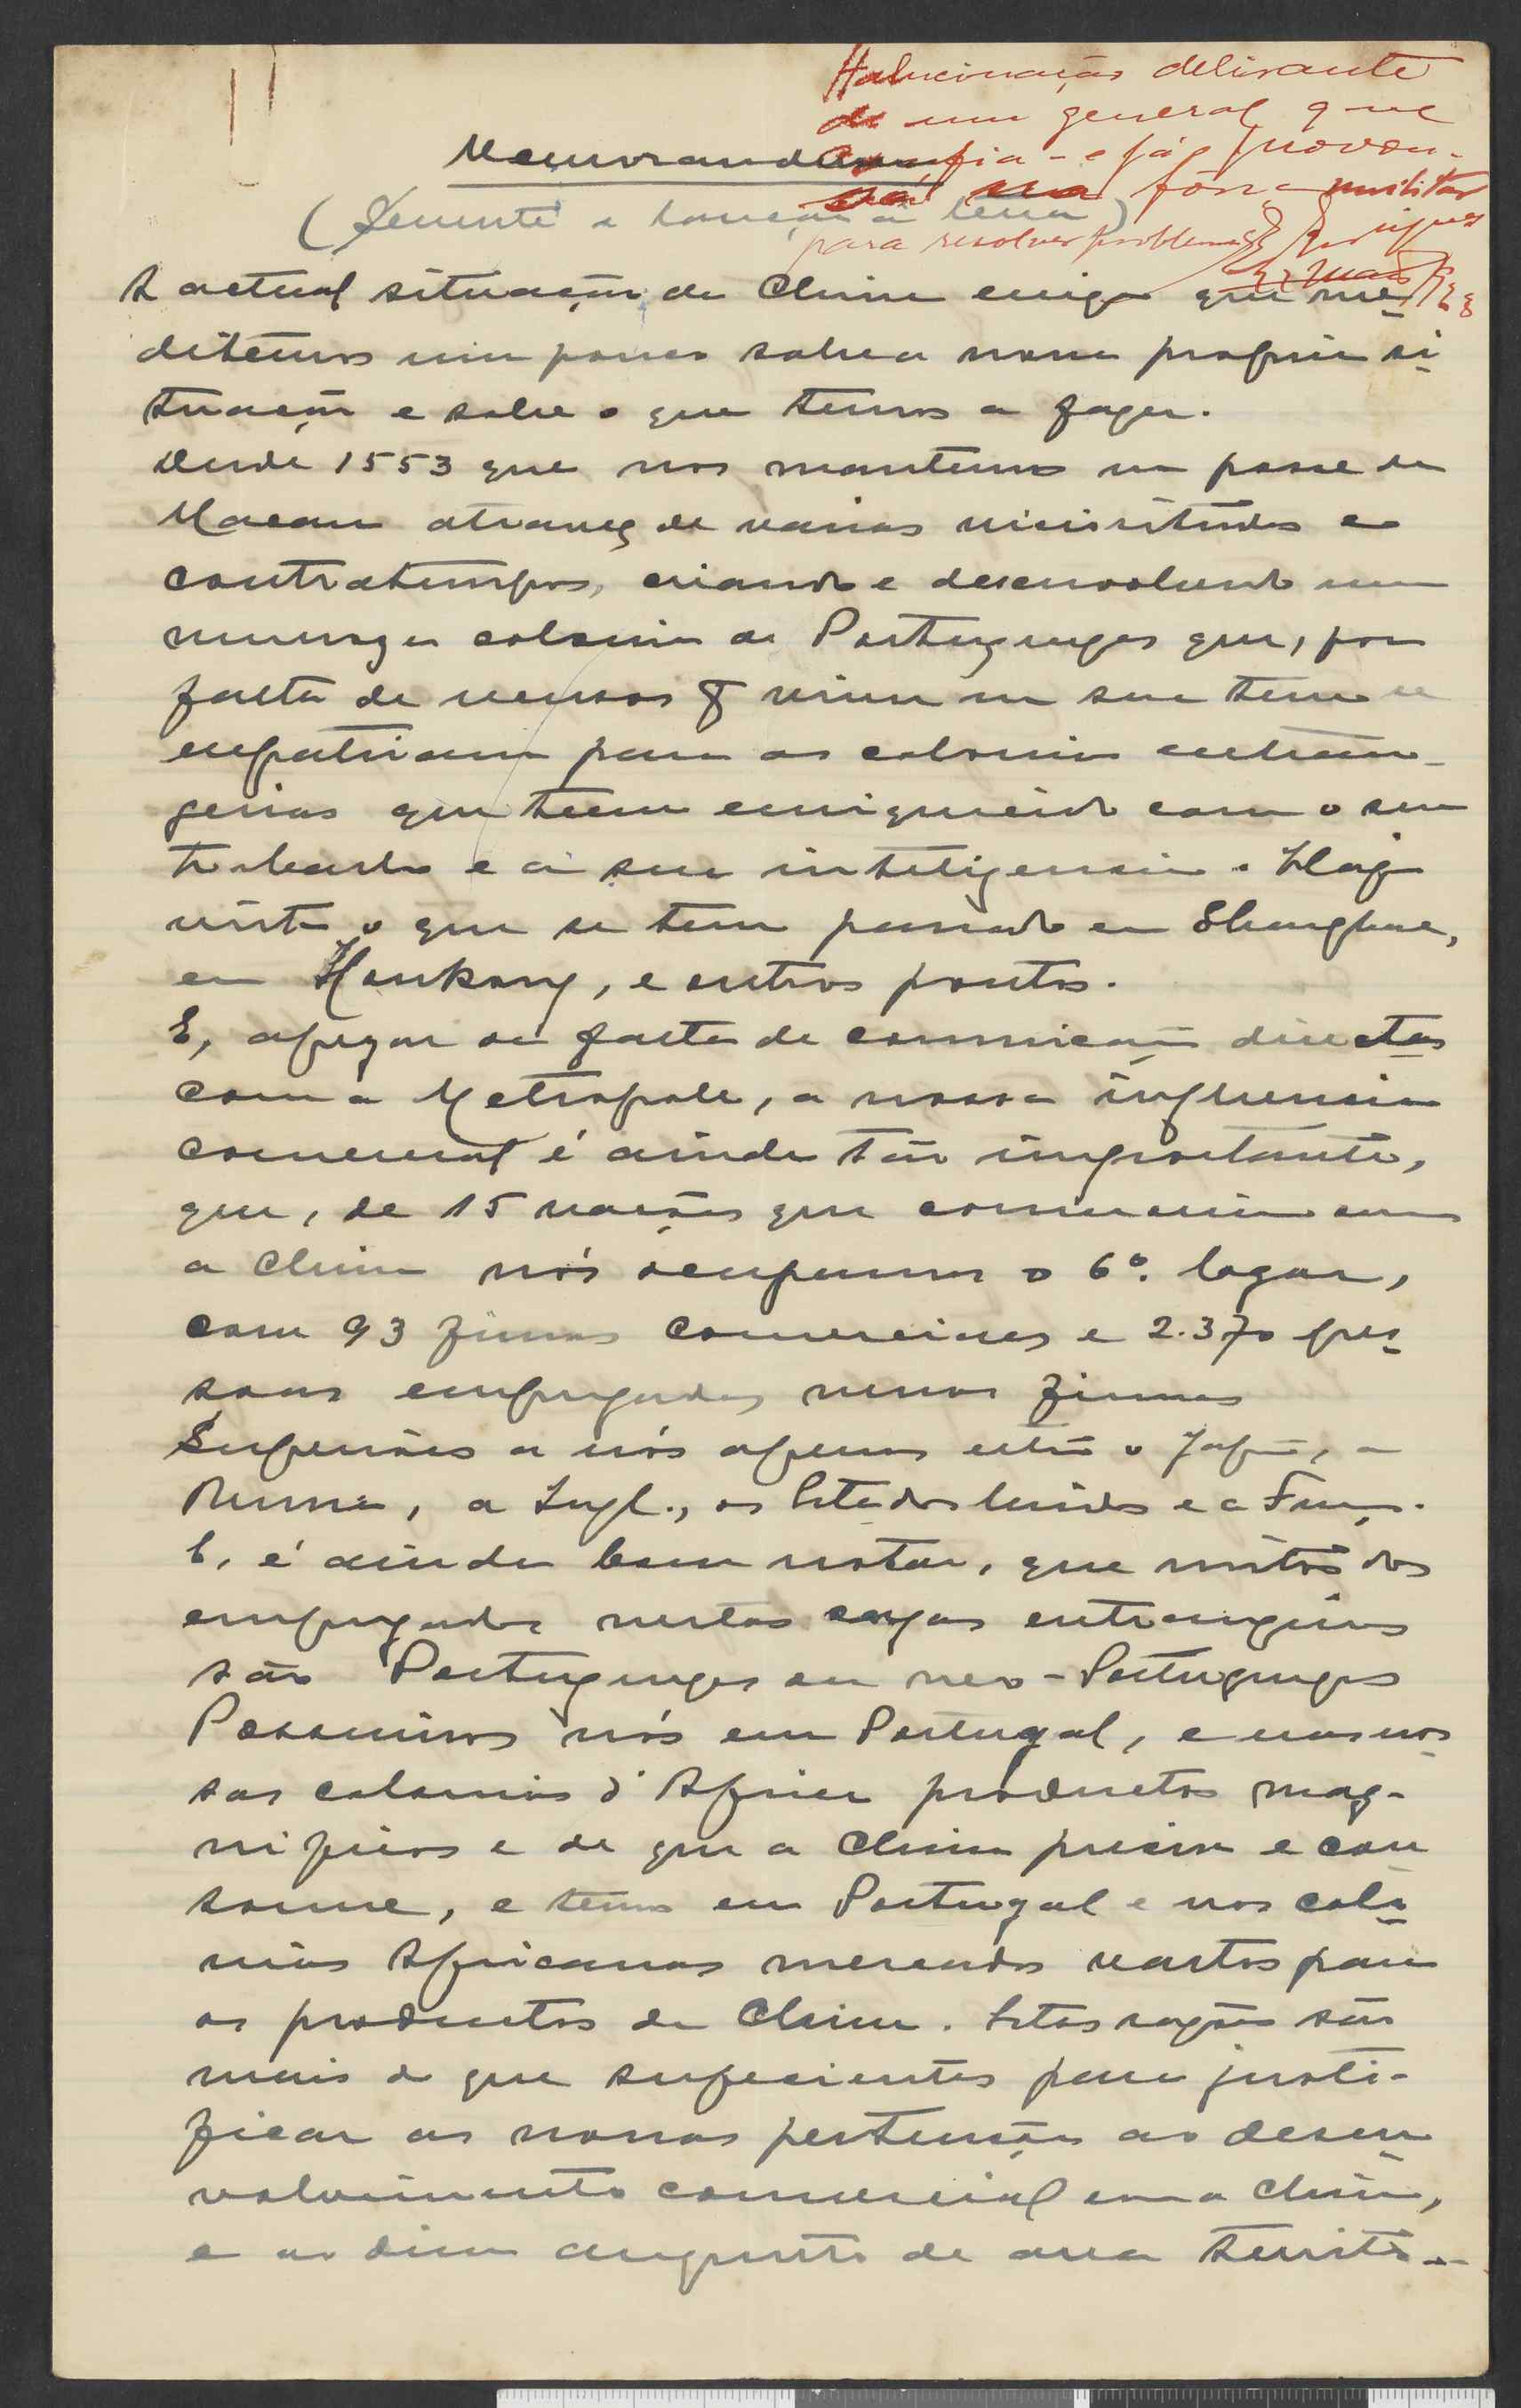 Halucinação delirante
de um general que
confia - e já provou -
na força militar
para resolver problemas
Memorandum
(Semente a lançar à terra)
A actual situação da China exige que me-
ditemos um pouco sobre a nossa propria si-
tuação e sobre o que temos a fazer.
Desde 1553 que nos mantemos na posse de
Macau atravez de varias vicissitudes e
contratempos, criando e desenvolvendo uma
numeroza colonia de Portuguezes que, por
falta de recursos p. viver na sua terra se
expatriam para as colonias extran-
geiras que teem enriquecido com o seu
trabalho e a sua inteligencia. Haja
vista o que se tem passado em Shanghae,
em Honkong, e outros pontos.
E, apezar da falta de comunicação directas
com a Metropole, a nossa influencia
comercial é ainda tão importante,
que, de 15 nações que comerciam com
a China nós ocupamos o 6º. logar,
com 93 firmas comerciaes e 2.370 pes-
soas empregadas nessas firmas
Superiores a nós apenas estão o Japão, a
Russia, a Ingl., os Estados Unidos e a França.
E, é ainda bom notar, que muitos dos
empregados nestas cazas extrangeiras
são Portuguezes ou neo-Portuguezes
Possuimos nós em Portugal, e nas nos-
sas colonias d'Africa productos mag-
nificos e de que a China precisa e con
some, e temos em Portugal e nas colo-
nias Africanas mercados vastos para
os productos da China. Estas razões são
mais do que suficientes para justi-
ficar as nossas pertensões ao desen-
volvimento comercial com a China,
e ao dum augmento de area territo-